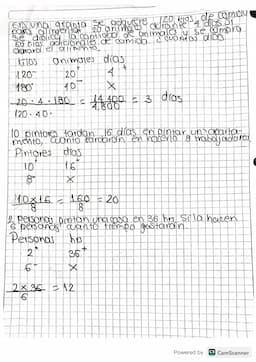 En una granja se adquiere 120 kilos de comida
para alimentar 20 animales durante 4 días si
se duplica la cantidad de animales y se compra
60 kilos adicionales de comida. ¿cuántos días
durará el alimento.
kilos animales días
120⁻ 20⁻ 4⁺
180⁺ 40⁻ x
20 · 4 · 180 = 14.400 = 3 días
120 · 40 · 4.800
10 pintores tardan 16 días en pintar un aparta-
mento, cuanto tardarán en hacerlo 8 trabajadores
Pintores días
10⁺ 16⁺
8⁻ x
10 x 16 = 160 = 20
8 8
2 personas pintan una casa en 36 hrs. Si la hacen
6 personas cuanto tiempo gastarán.
Personas hrs
2⁺ 36⁺
6⁻ x
2 x 36 = 12
6
Powered by CS CamScanner